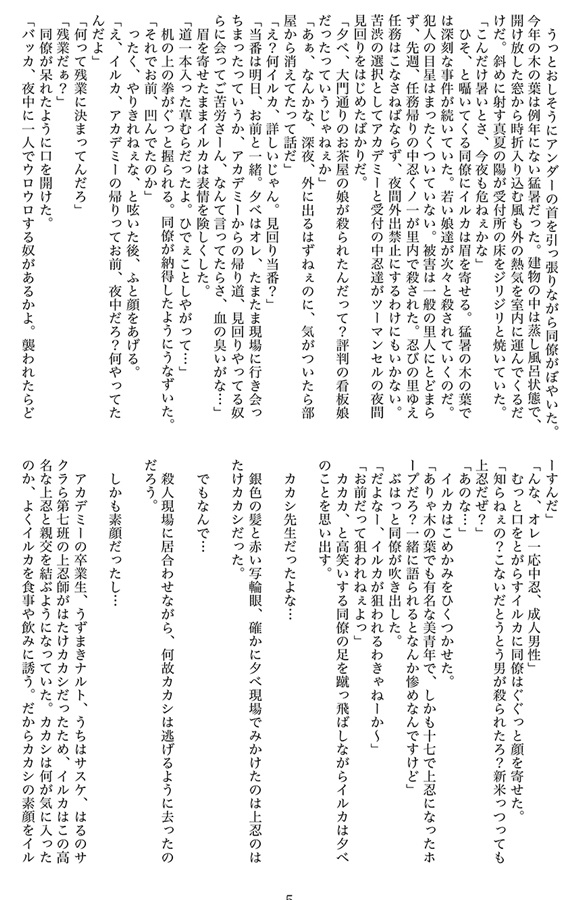 うっとおしそうにアンダーの首を引っ張りながら同僚がぼやいた。
今年の木の葉は例年にない猛暑だった。建物の中は蒸し風呂状態で、
開け放した窓から時折入り込む風も外の熱気を室内に運んでくるだ
けだ。斜めに射す真夏の陽が受付所の床をジリジリと焼いていた。
「こんだけ暑いとさ、今夜も危ねぇかな」
ひそ、と囁いてくる同僚にイルカは眉を寄せる。猛暑の木の葉で
は深刻な事件が続いていた。若い娘達が次々と殺されていくのだ。
犯人の目星はまったくついていない。被害は一般の里人にとどまら
ず、先週、任務帰りの中忍くノ一が里内で殺された。忍びの里ゆえ
任務はこなさねばならず、夜間外出禁止にするわけにもいかない。
苦渋の選択としてアカデミーと受付の中忍達がツーマンセルの夜間
見回りをはじめたばかりだ。
「夕べ、大門通りのお茶屋の娘が殺られたんだって？評判の看板娘
だったっていうじゃねぇか」
「あぁ、なんかな、深夜、外に出るはずねぇのに、気がついたら部
屋から消えてたって話だ」
「え？何イルカ、詳しいじゃん。見回り当番？」
「当番は明日、お前と一緒。夕べはオレ、たまたま現場に行き会っ
ちまったっていうか、アカデミーからの帰り道、見回りやってる奴
らに会ってご苦労さーん、なんて言ってたらさ、血の臭いがな…」
眉を寄せたままイルカは表情を険しくした。
「道一本入った草むらだったよ。ひでぇことしやがって…」
机の上の拳がぐっと握られる。同僚が納得したようにうなずいた。
「それでお前、凹んでたのか」
ったく、やりきれねぇな、と呟いた後、ふと顔をあげる。
「え、イルカ、アカデミーの帰りってお前、夜中だろ？何やってた
んだよ」
「何って残業に決まってんだろ」
「残業だぁ？」
同僚が呆れたように口を開けた。
「バッカ、夜中に一人でウロウロする奴があるかよ。襲われたらど
ーすんだ」
「んな、オレ一応中忍、成人男性」
むっと口をとがらすイルカに同僚はぐぐっと顔を寄せた。
「知らねぇの？こないだとうとう男が殺られたろ？新米っつっても
上忍だぜ？」
「あのな…」
イルカはこめかみをひくつかせた。
「ありゃ木の葉でも有名な美青年で、しかも十七で上忍になったホ
ープだろ？一緒に語られるとなんか惨めなんですけど」
ぶはっと同僚が吹き出した。
「だよなー、イルカが狙われるわきゃねーか～」
「お前だって狙われねぇよっ」
カカカ、と高笑いする同僚の足を蹴っ飛ばしながらイルカは夕べ
のことを思い出す。
カカシ先生だったよな…
銀色の髪と赤い写輪眼、確かに夕べ現場でみかけたのは上忍のは
たけカカシだった。
でもなんで…
殺人現場に居合わせながら、何故カカシは逃げるように去ったの
だろう。
しかも素顔だったし…
アカデミーの卒業生、うずまきナルト、うちはサスケ、はるのサ
クラら第七班の上忍師がはたけカカシだったため、イルカはこの高
名な上忍と親交を結ぶようになっていた。カカシは何が気に入った
のか、よくイルカを食事や飲みに誘う。だからカカシの素顔をイル
5